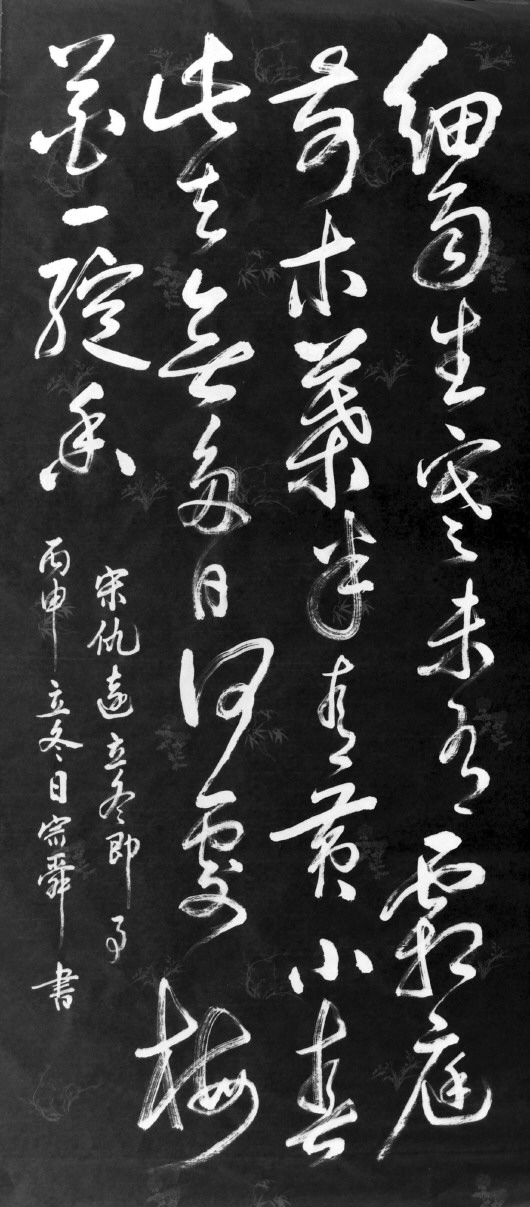 細雨生寒未有霜庭
前木葉半青黃小春
此去無多日何處梅
花一綻香
宋仇遠立冬即事
丙申立冬日宗舜書